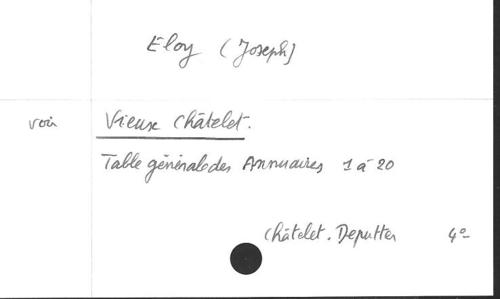 Eloy (Joseph)
voir Vieux Châtelet.
Table générale des Annuaires 1 à 20
Châtelet. Deputter 4°